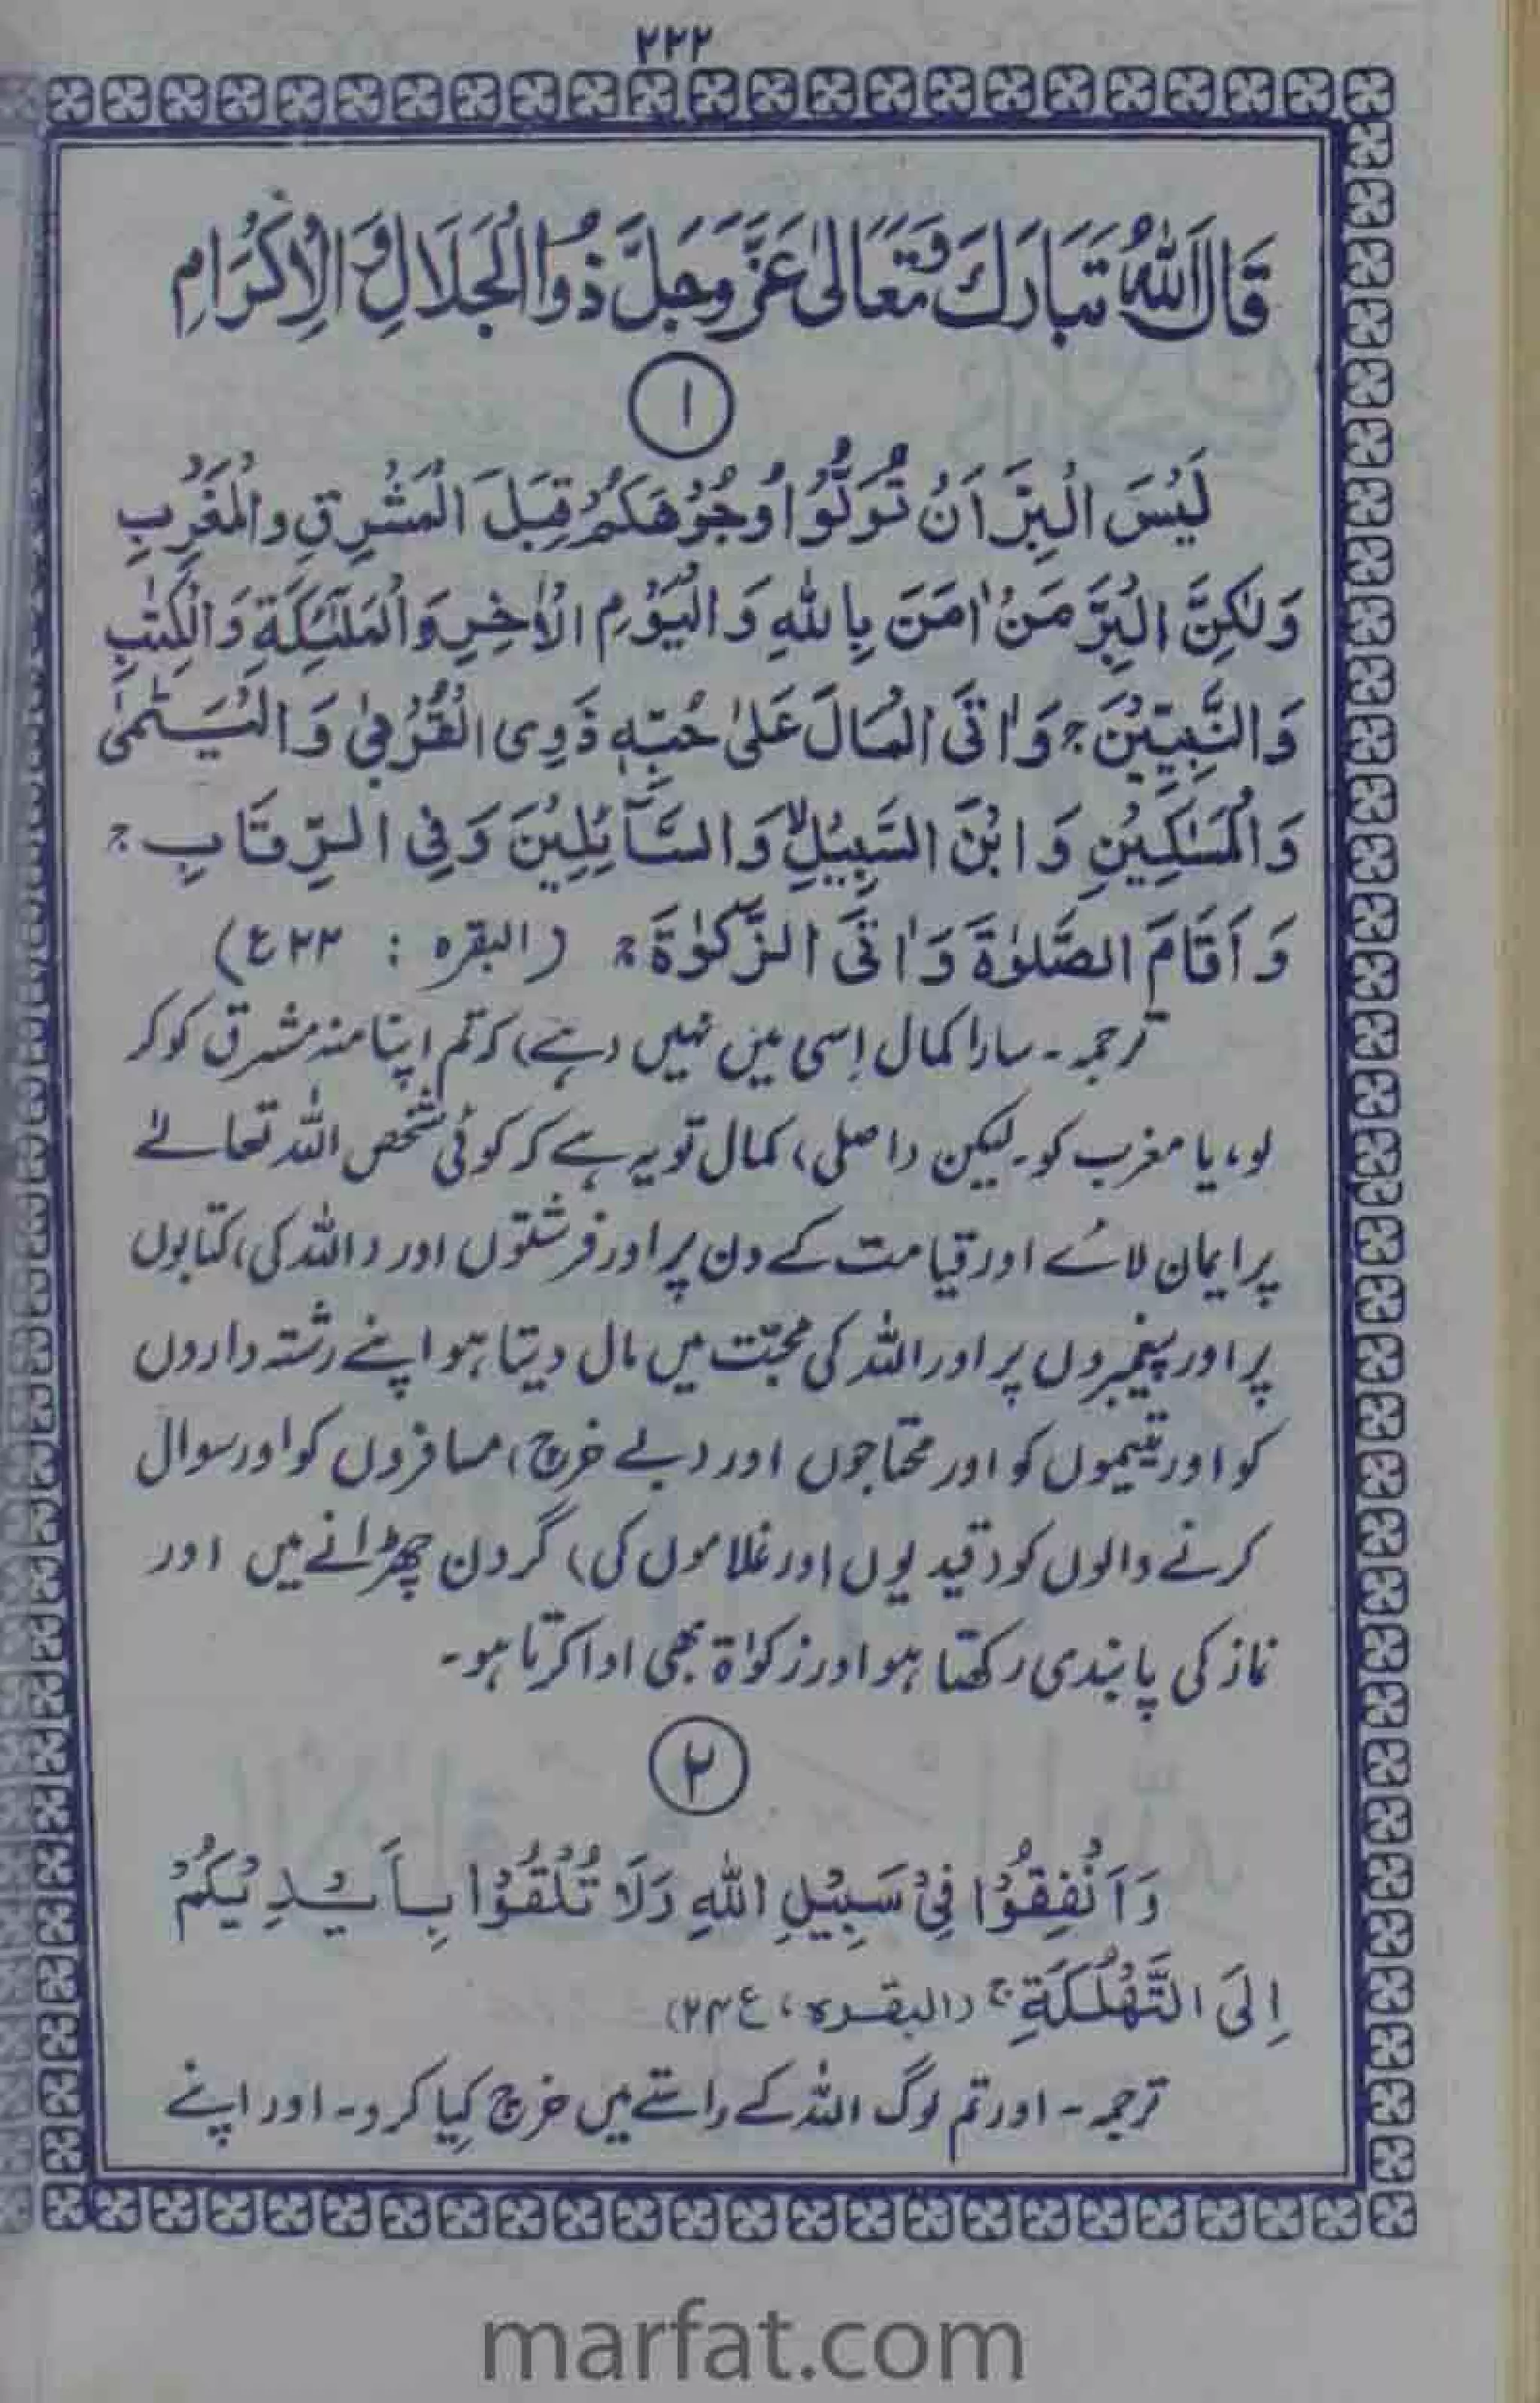 ۲۲۲
قَالَ اللّٰهُ تَبَارَكَ وَتَعَالٰى عَزَّ وَجَلَّ ذُوا الْجَلَالِ وَالْاِكْرَامِ
۱
لَيْسَ الْبِرَّ اَنْ تُوَلُّوْا وُجُوْهَكُمْ قِبَلَ الْمَشْرِقِ والْمَغْرِبِ
وَلٰكِنَّ الْبِرَّ مَنْ اٰمَنَ بِاللّٰهِ وَالْيَوْمِ الْاٰخِرِ وَالْمَلٰٓئِكَةِ وَالْكِتٰبِ
وَالنَّبِيّٖنَ ۚ وَاٰتَى الْمَالَ عَلٰى حُبِّهٖ ذَوِى الْقُرْبٰى وَالْيَتٰمٰى
وَالْمَسٰكِيْنِ وَابْنَ السَّبِيْلِ ۙ وَالسَّآئِلِيْنَ وَفِى الرِّقَابِ ۚ
وَاَقَامَ الصَّلٰوةَ وَاٰتَى الزَّكٰوةَ ۚ (البقرہ : ۲۲ع)
ترجمہ ۔ سارا کمال اِسی میں نہیں (ہے) کہ تم اپنا منہ مشرق کو کر
لو، یا مغرب کو۔ لیکن (اصلی) کمال تو یہ ہے کہ کوئی شخص اللہ تعالےٰ
پر ایمان لائے اور قیامت کے دن پر اور فرشتوں اور (اللہ کی) کتابوں
پر اور پیغمبروں پر اور اللہ کی محبّت میں مال دیتا ہو اپنے رشتہ داروں
کو اور یتیموں کو اور محتاجوں اور (بے خرچ) مسافروں کو اور سوال
کرنے والوں کو (قیدیوں اور غلاموں کی) گردن چھڑانے میں اور
نماز کی پابندی رکھتا ہو اور زکوٰۃ بھی ادا کرتا ہو۔
۲
وَاَنْفِقُوْا فِىْ سَبِيْلِ اللّٰهِ وَلَا تُلْقُوْا بِاَيْدِيْكُمْ
اِلَى التَّهْلُكَةِ ۚ (البقرہ، ع۲۴)
ترجمہ ۔ اور تم لوگ اللہ کے راستے میں خرچ کِیا کرو۔ اور اپنے
marfat.com